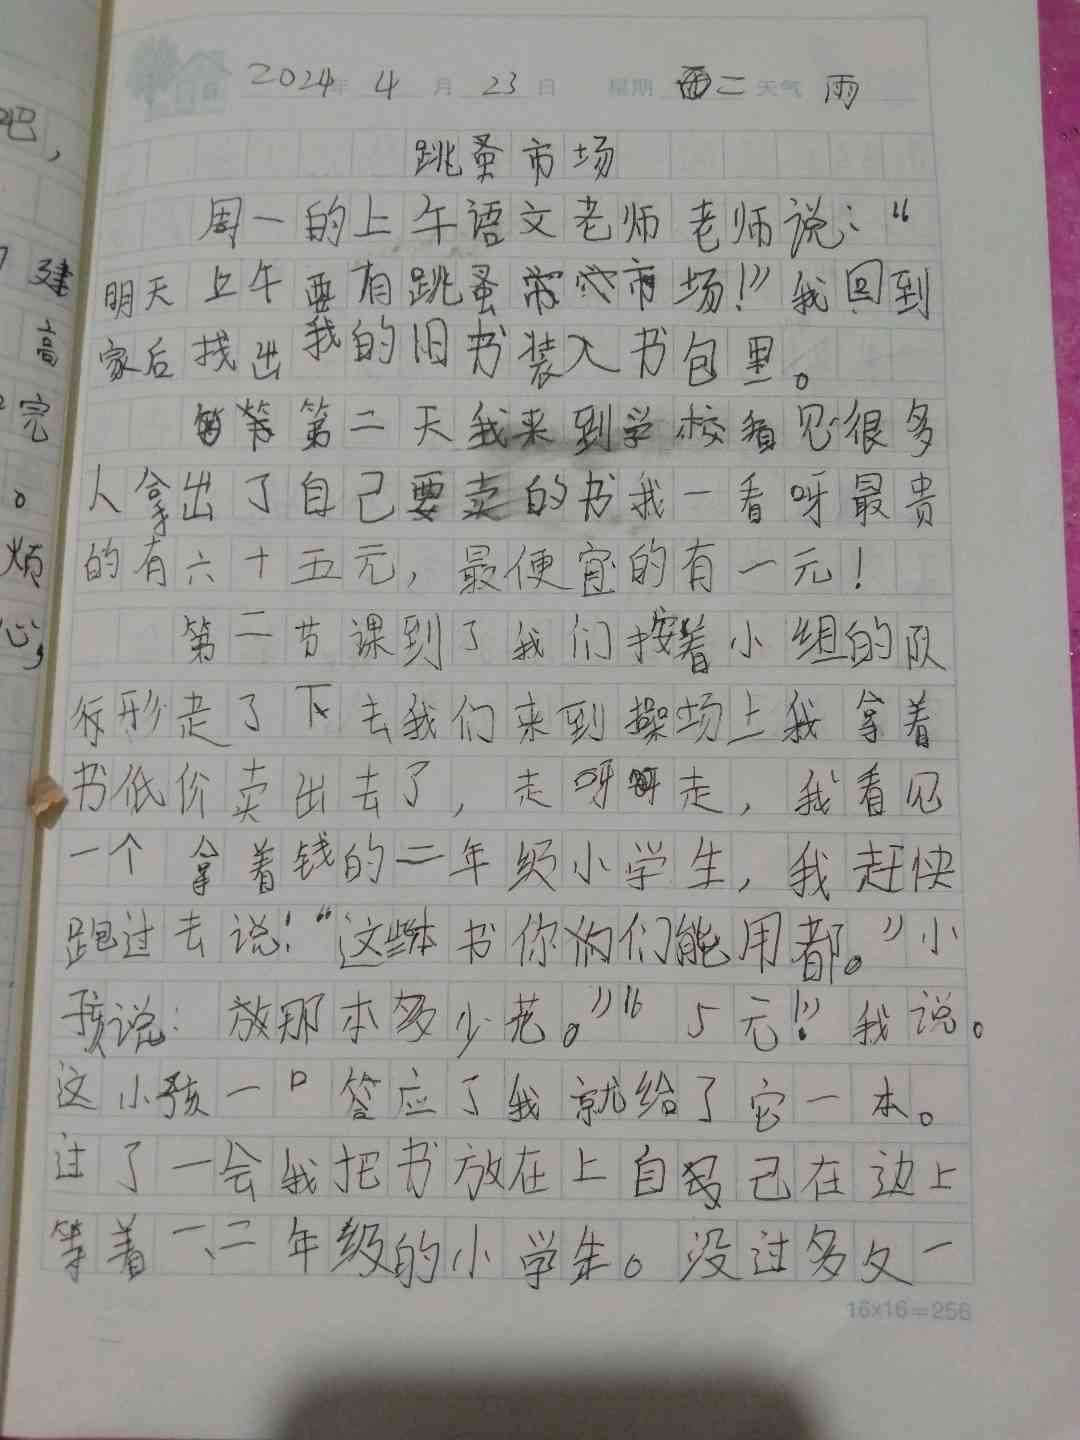 2024年 4月 23日 星期 二 天气 雨
跳蚤市场
周一的上午语文老师老师说：“
明天上午要有跳蚤市场！”我回到
家后找出我的旧书装入书包里。
第二天我来到学校看见很多
人拿出了自己要卖的书我一看呀最贵
的有六十五元，最便宜的有一元！
第二节课到了我们按着小组的队
行形走了下去我们来到操场上我拿着
书低价卖出去了，走呀走，我看见
一个拿着钱的二年级小学生，我赶快
跑过去说：“这些本书你们能用都。”小
孩说：放那本多少花。”“5元！”我说。
这小孩一口答应了我就给了它一本。
过了一会我把书放在上自己在边上
等着一、二年级的小学生。没过多久一
16×16=256
吧，
建
高
完
。
烦
心，